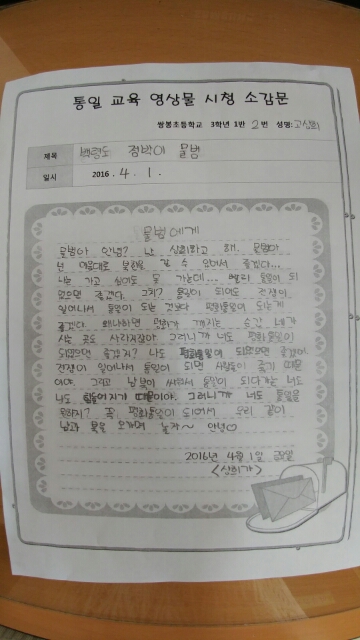 통일 교육 영상물 시청 소감문
쌍봉초등학교 3학년 1반 2번 성명: 고신희
제목 백령도 점박이 물범
일시 2016. 4. 1.
물범에게
물범아 안녕? 난 신희라고 해. 물범아
넌 마음대로 북한을 갈 수 있어서 좋겠다...
나는 가고 싶어도 못 가는데... 빨리 통일이 되
었으면 좋겠다. 그치? 통일이 되어도 전쟁이
일어나서 통일이 되는 것보다 평화통일이 되는게
좋겠다 왜냐하면 평화가 깨지는 순간 네가
사는 곳도 사라지잖아 그러니까 너도 평화통일이
되었으면 좋겠지? 나도 평화통일이 되었으면 좋겠어
전쟁이 일어나서 통일이 되면 사람들이 죽기 때문
이야. 그리고 남북이 싸워서 통일이 되다가는 너도
나도 힘들어지기 때문이야. 그러니까 너도 통일을
원하지? 꼭 평화통일이 되어서 우리 같이
남과 북을 오가며 놀자~ 안녕♡
2016년 4월 1일 금요일
<신희가>